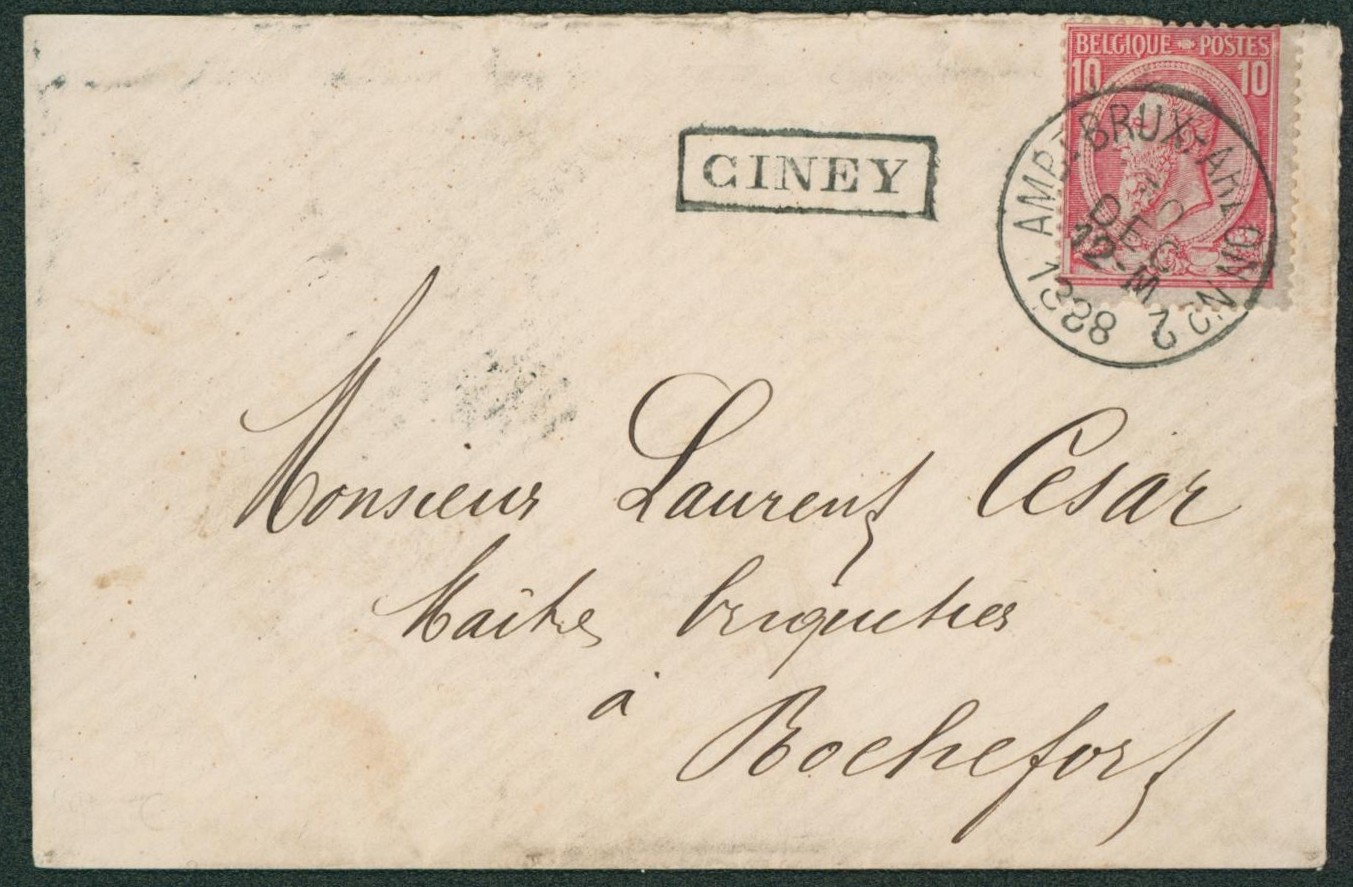 BELGIQUE POSTES
10 10
CINEY
AMBT BRUX-ARLON
10
DEC
12-M
1888
2
Monsieur Laurent César
Maître briquetier
à
Rochefort